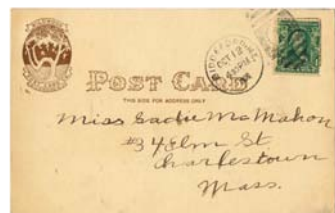 POST CARD
THIS SIDE FOR ADDRESS ONLY
OCT 13
Miss Sadie McMahon
#34 Elm St
Charlestown
Mass.